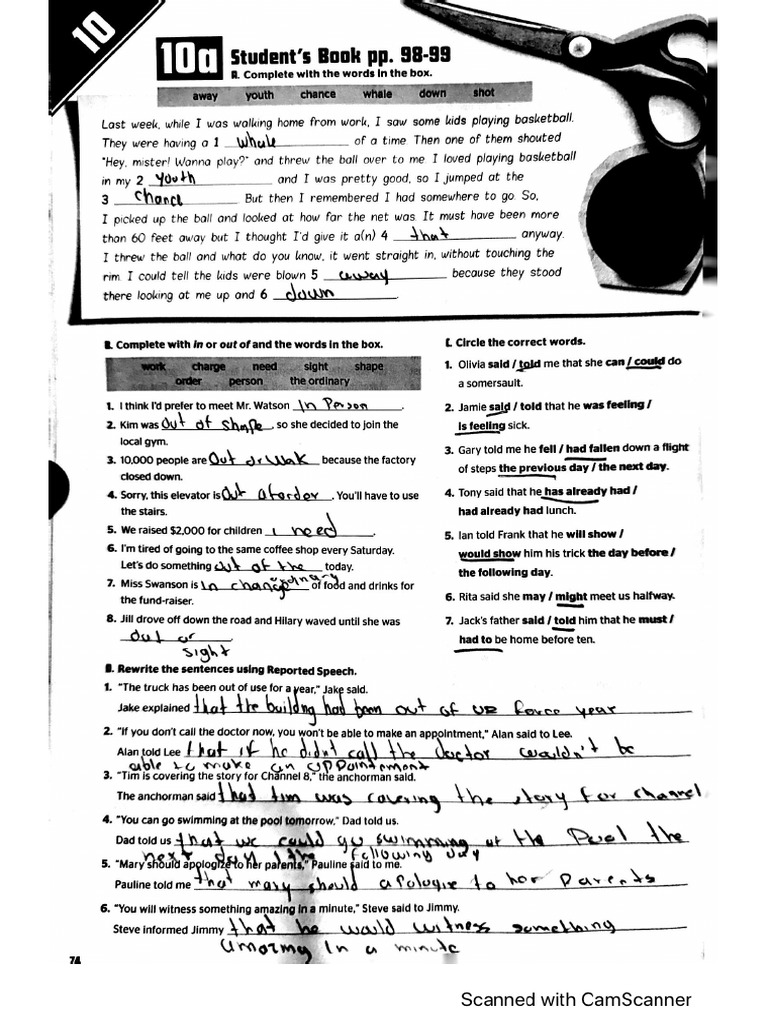 10
10a Student's Book pp. 98-99
A. Complete with the words in the box.
away youth chance whale down shot
Last week, while I was walking home from work, I saw some kids playing basketball.
They were having a 1 whale of a time. Then one of them shouted
"Hey, mister! Wanna play?" and threw the ball over to me. I loved playing basketball
in my 2 youth and I was pretty good, so I jumped at the
3 chance. But then I remembered I had somewhere to go. So,
I picked up the ball and looked at how far the net was. It must have been more
than 60 feet away but I thought I'd give it a(n) 4 that anyway.
I threw the ball and what do you know, it went straight in, without touching the
rim. I could tell the kids were blown 5 away because they stood
there looking at me up and 6 down.
B. Complete with in or out of and the words in the box.
work charge need sight shape
order person the ordinary
1. I think I'd prefer to meet Mr. Watson In Person.
2. Kim was Out of shape, so she decided to join the
local gym.
3. 10,000 people are Out or Wak because the factory
closed down.
4. Sorry, this elevator is Out aforder. You'll have to use
the stairs.
5. We raised $2,000 for children I need.
6. I'm tired of going to the same coffee shop every Saturday.
Let's do something out of the today.
7. Miss Swanson is In change of food and drinks for
the fund-raiser.
8. Jill drove off down the road and Hilary waved until she was
out or
sight
C. Circle the correct words.
1. Olivia said / told me that she can / could do
a somersault.
2. Jamie said / told that he was feeling /
is feeling sick.
3. Gary told me he fell / had fallen down a flight
of steps the previous day / the next day.
4. Tony said that he has already had /
had already had lunch.
5. Ian told Frank that he will show /
would show him his trick the day before /
the following day.
6. Rita said she may / might meet us halfway.
7. Jack's father said / told him that he must /
had to be home before ten.
D. Rewrite the sentences using Reported Speech.
1. "The truck has been out of use for a year," Jake said.
Jake explained that the building had been out of force year
2. "If you don't call the doctor now, you won't be able to make an appointment," Alan said to Lee.
Alan told Lee that if he didnt call the doctor wouldn't be
able to make an uppointemont
3. "Tim is covering the story for Channel 8," the anchorman said.
The anchorman said that tim was covering the story for channel
4. "You can go swimming at the pool tomorrow," Dad told us.
Dad told us that we could go swimming at the Pool the
next day / the following day
5. "Mary should apologize to her parents," Pauline said to me.
Pauline told me that mary should apologie to hor Parents
6. "You will witness something amazing in a minute," Steve said to Jimmy.
Steve informed Jimmy that he would witness something
amazing In a minute
74
Scanned with CamScanner